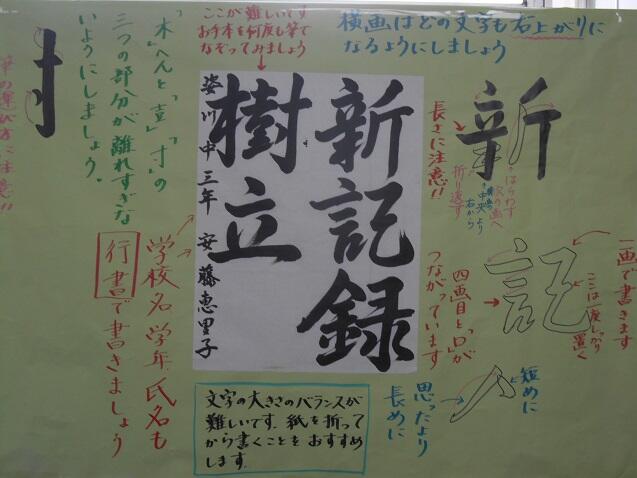 横画はどの文字も右上がりに
なるようにしましょう
ここが難しいです
お手本を何度も筆で
なぞってみましょう
「木」へんと「壴」「寸」の
三つの部分が離れすぎな
いようにしましょう。
新記録
樹立
姿川中三年 安藤恵里子
新
長さに注意!!
折り返す
中央より
右から
はらわず
次の画へ
記
一画で書きます
ここは一度しっかり
置く
四画目と「口」が
つながっています
短めに
思ったより
長めに
学校名学年氏名も
行書で書きましょう
文字の大きさのバランスが
難しいです。紙を折って
から書くことをおすすめ
します。
寸
筆の運び方に注意!!